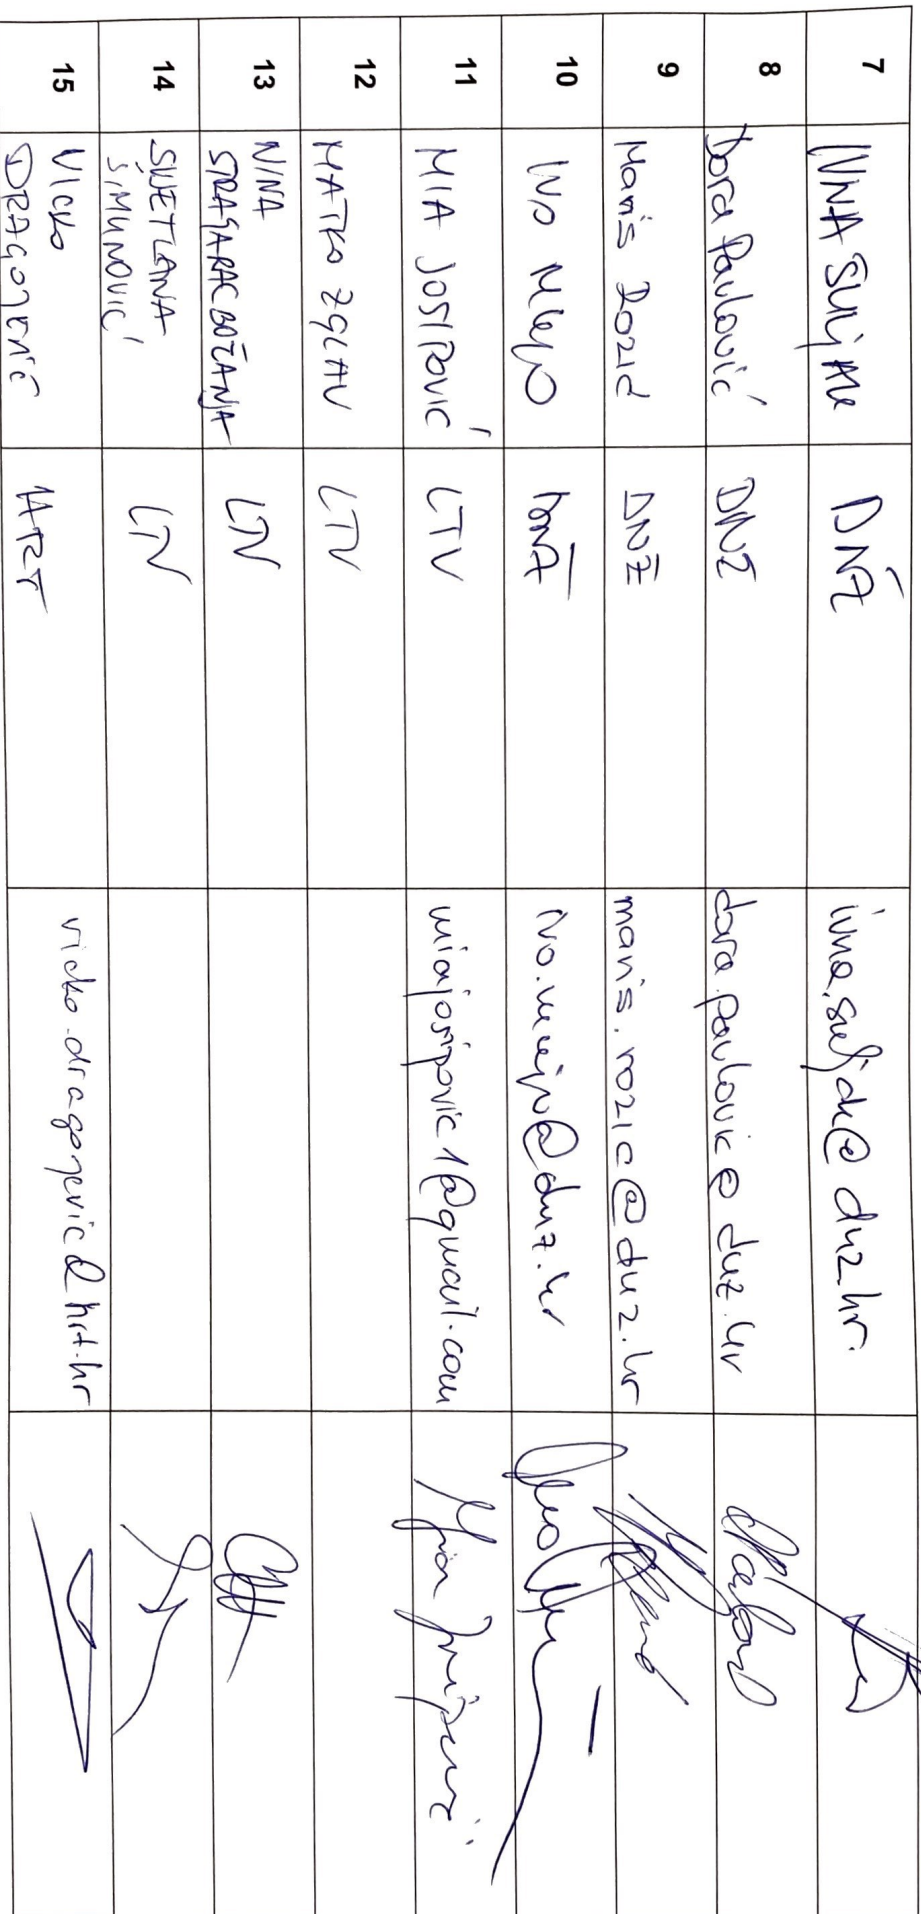 7 IVNA SULJAK DNŽ ivna.suljak@duz.hr.
8 Dora Pavlović DNŽ dora.pavlovic@duz.hr
9 Maris Rozić DNŽ maris.rozic@duz.hr
10 IVO DNŽ
11 MIA JOSIPOVIĆ LTV miajosipovic1@gmail.com Mia Josipović
12 MATKO ŽGLAV LTV
13 NINA
STRAGARAC BOŽANJA LTV
14 SVJETLANA
ŠIMUNOVIĆ LTV
15 VICKO
DRAGOJEVIĆ HRT vicko.dragojevic@hrt.hr